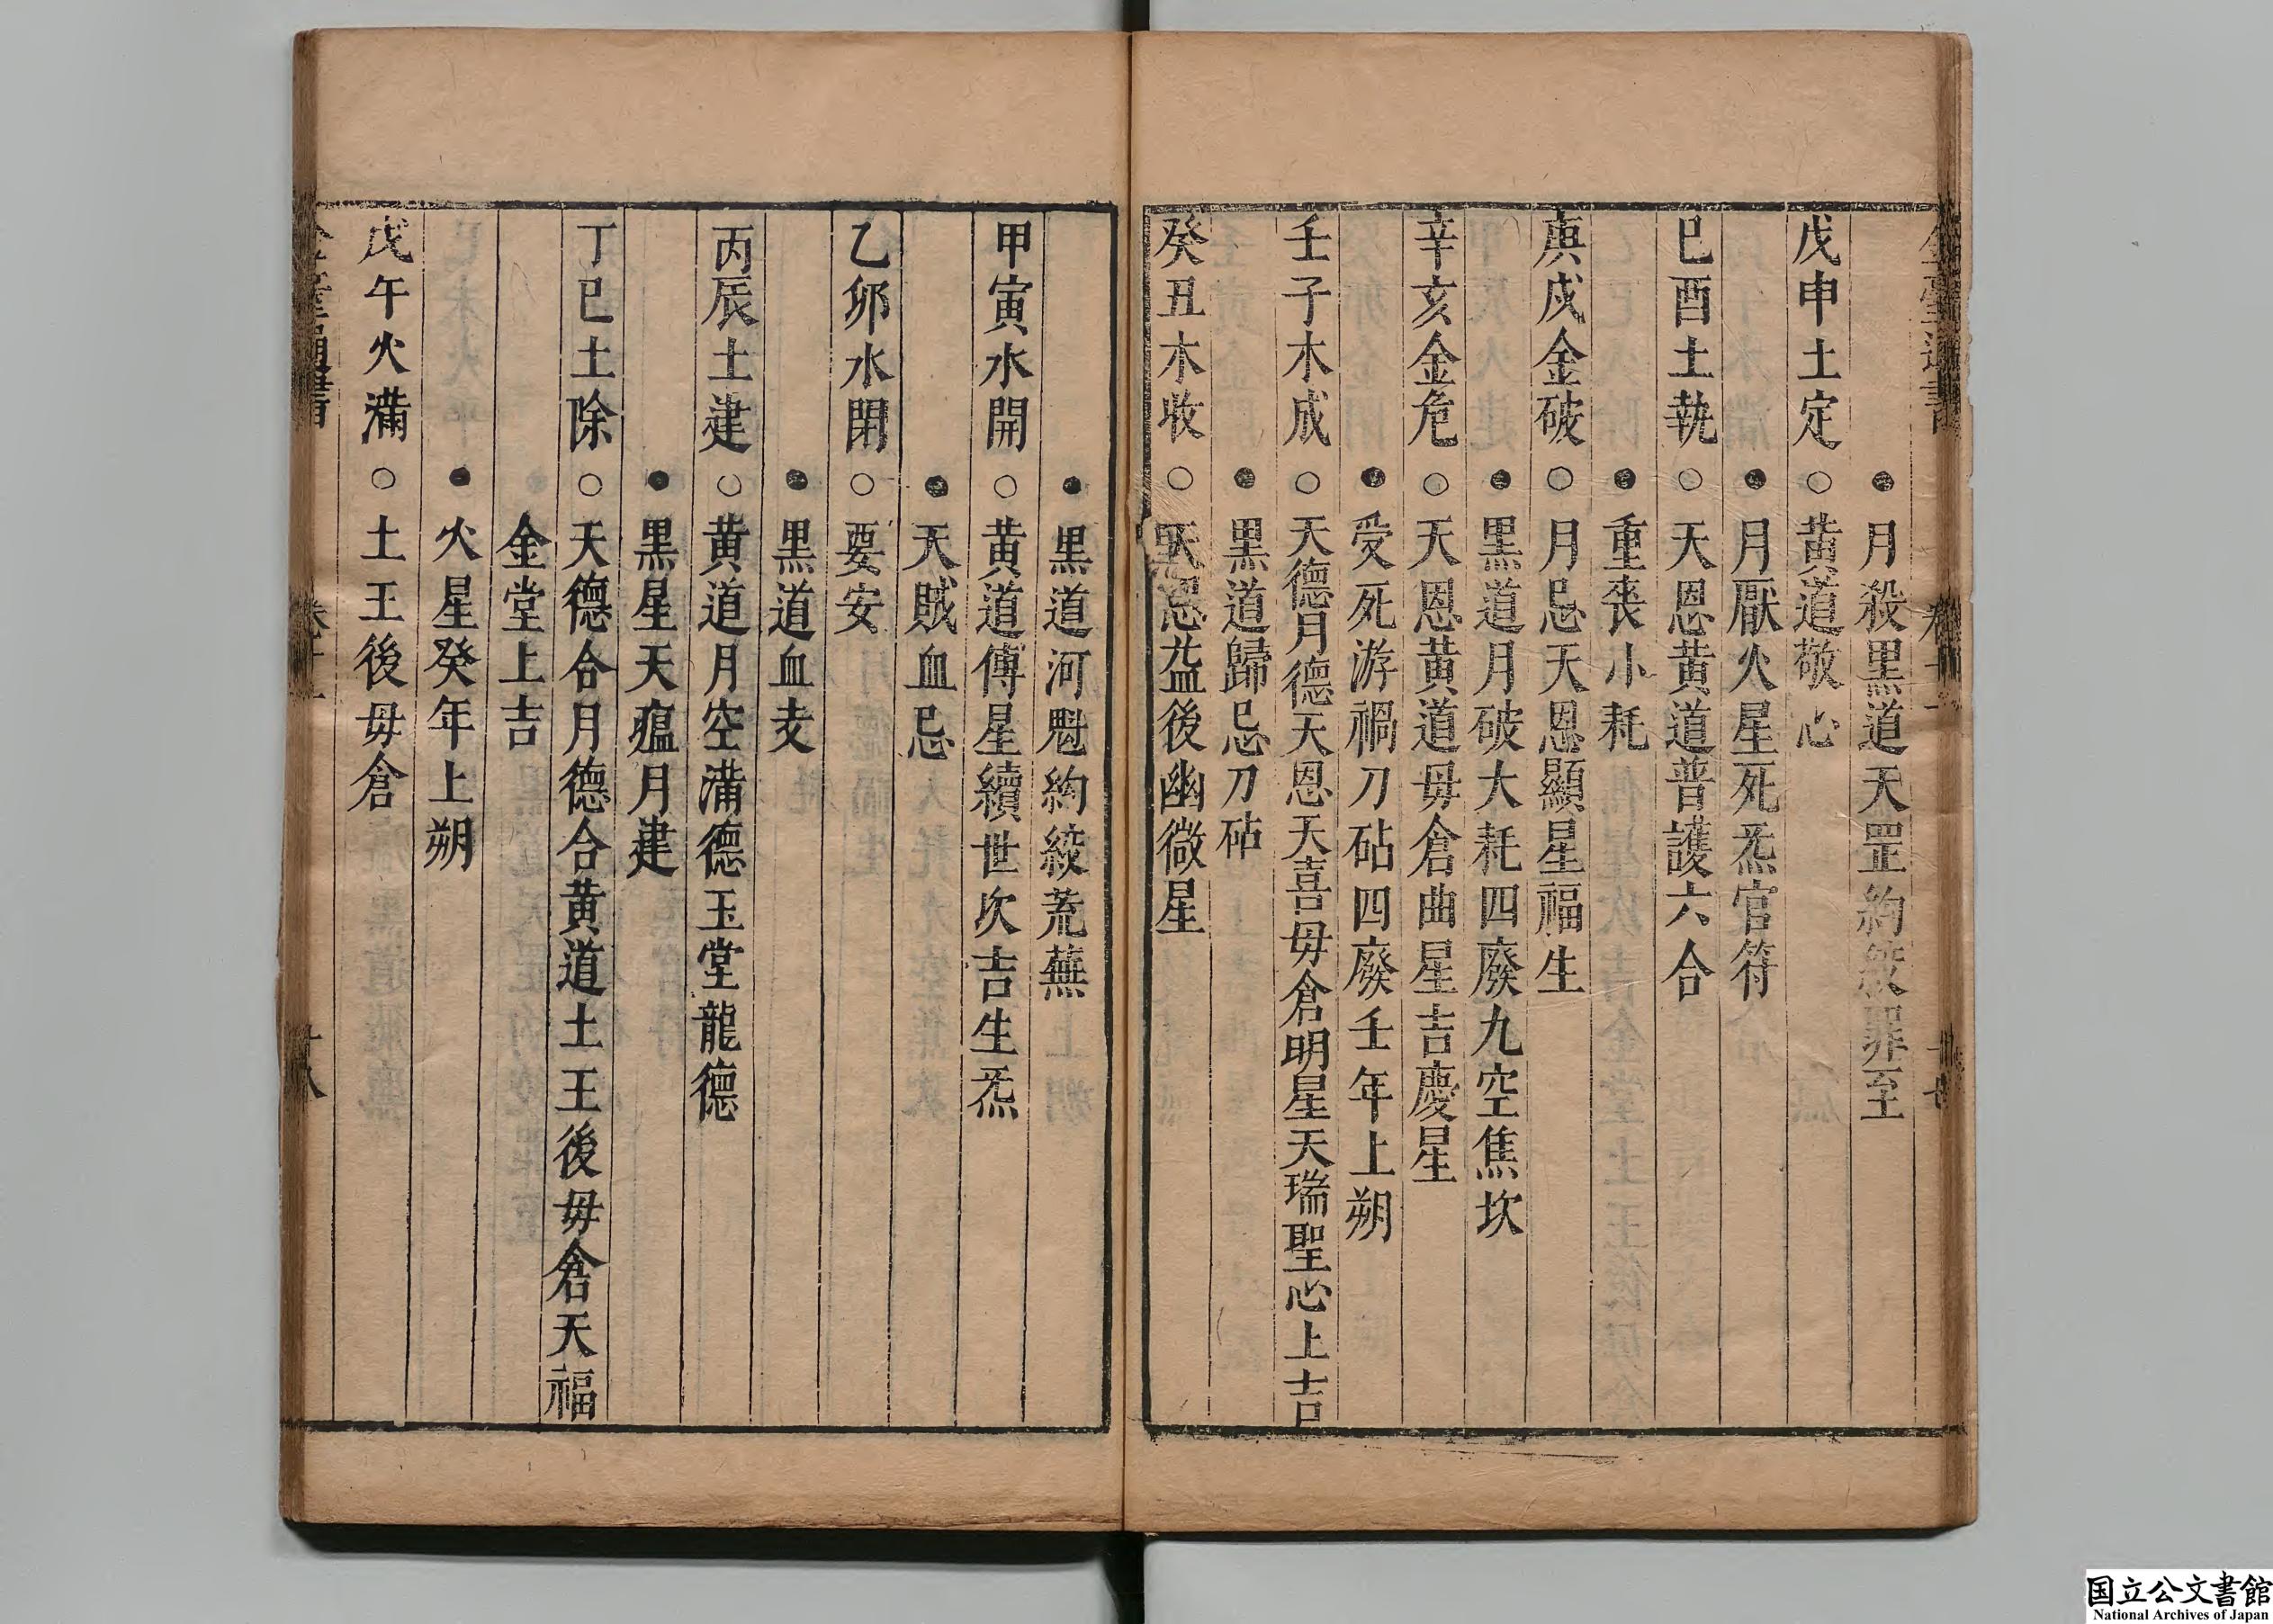 ●月殺黒道天罡約絞罪至
戊申土定○黄道敬心
●月厭火星死炁官符
巳酉土執○天恩黄道普護六合
●重喪小耗
庚戌金破○月忌天恩顯星福生
●黒道月破大耗四廢九空焦坎
辛亥金危○天恩黄道毋倉曲星吉慶星
●受死游禍刀砧四廢壬年上朔
壬子木成○天德月德天恩天喜毋倉明星天瑞聖心上吉
●黒道歸忌刀砧
癸丑木收○天恩益後幽微星
●黒道河魁約絞荒蕪
甲寅水開○黄道傳星續世次吉生炁
●天賊血忌
乙卯水閉○要安
●黒道血支
丙辰土建○黄道月空滿德玉堂龍德
●黒星天瘟月建
丁巳土除○天德合月德合黄道土王後毋倉天福
金堂上吉
●火星癸年上朔
戊午火滿○土王後毋倉
国立公文書館
National Archives of Japan